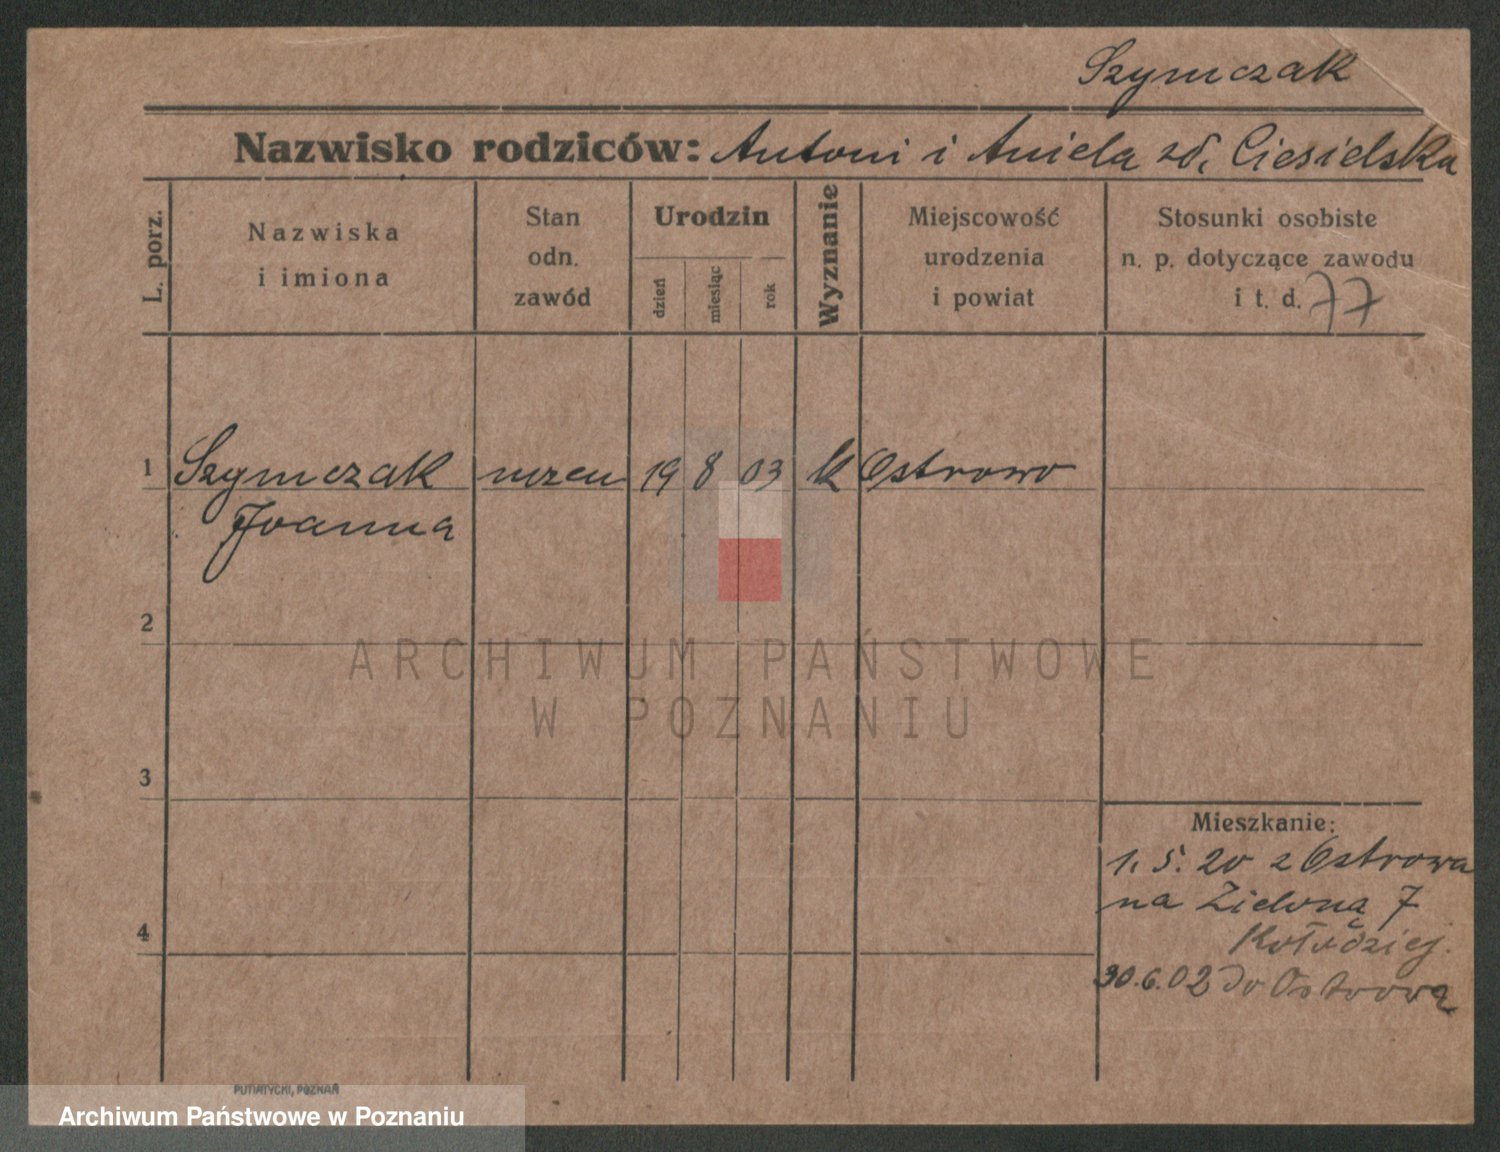 Szymczak
Nazwisko rodziców: Antoni i Aniela zd. Ciesielska
L. porz.
Nazwiska
i imiona
Stan
odn.
zawód
Urodzin
dzień
miesiąc
rok
Wyznanie
Miejscowość
urodzenia
i powiat
Stosunki osobiste
n. p. dotyczące zawodu
i t. d. 77
1 Szymczak uczen 19 8 03 k Ostrowo
Joanna
2
ARCHIWUM PAŃSTWOWE
W POZNANIU
3
Mieszkanie:
1. 5. 20 z Ostrowa
na Zieloną 7
Kołodziej.
4
30.6.02 do Ostrowa
PUTIATYCKI, POZNAŃ
Archiwum Państwowe w Poznaniu